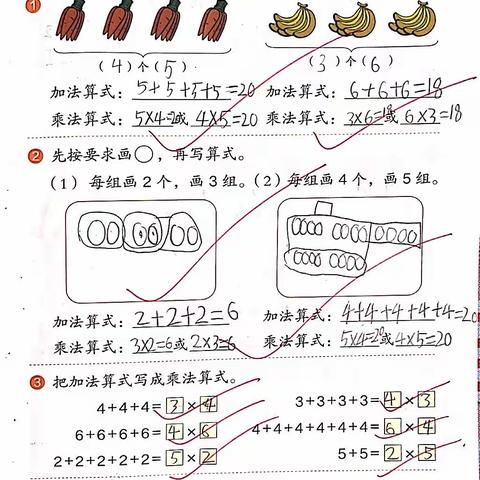 1
(4)个(5) (3)个(6)
加法算式:5+5+5+5=20 加法算式:6+6+6=18
乘法算式:5×4=20或 4×5=20 乘法算式:3×6=18或 6×3=18
2 先按要求画○,再写算式。
(1) 每组画2个,画3组。(2) 每组画4个,画5组。
加法算式:2+2+2=6 加法算式:4+4+4+4+4=20
乘法算式:3×2=6或 2×3=6 乘法算式:5×4=20或4×5=20
3 把加法算式写成乘法算式。
4+4+4=3×4 3+3+3+3=4×3
6+6+6+6=4×6 4+4+4+4+4+4=6×4
2+2+2+2+2=5×2 5+5=2×5